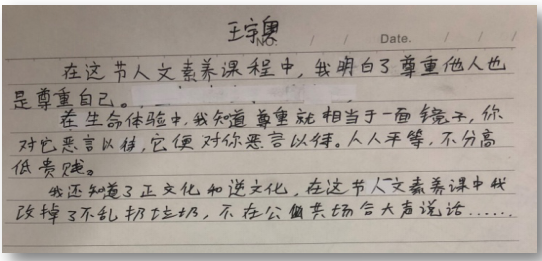 王宇奥
NO. / / Date. / / /
在这节人文素养课程中，我明白了尊重他人也
是尊重自己。
在生命体验中，我知道尊重就相当于一面镜子，你
对它恶言以待，它便对你恶言以待。人人平等，不分高
低贵贱。
我还知道了正文化和逆文化，在这节人文素养课中我
改掉了不乱扔垃圾，不在公共场合大声说话……